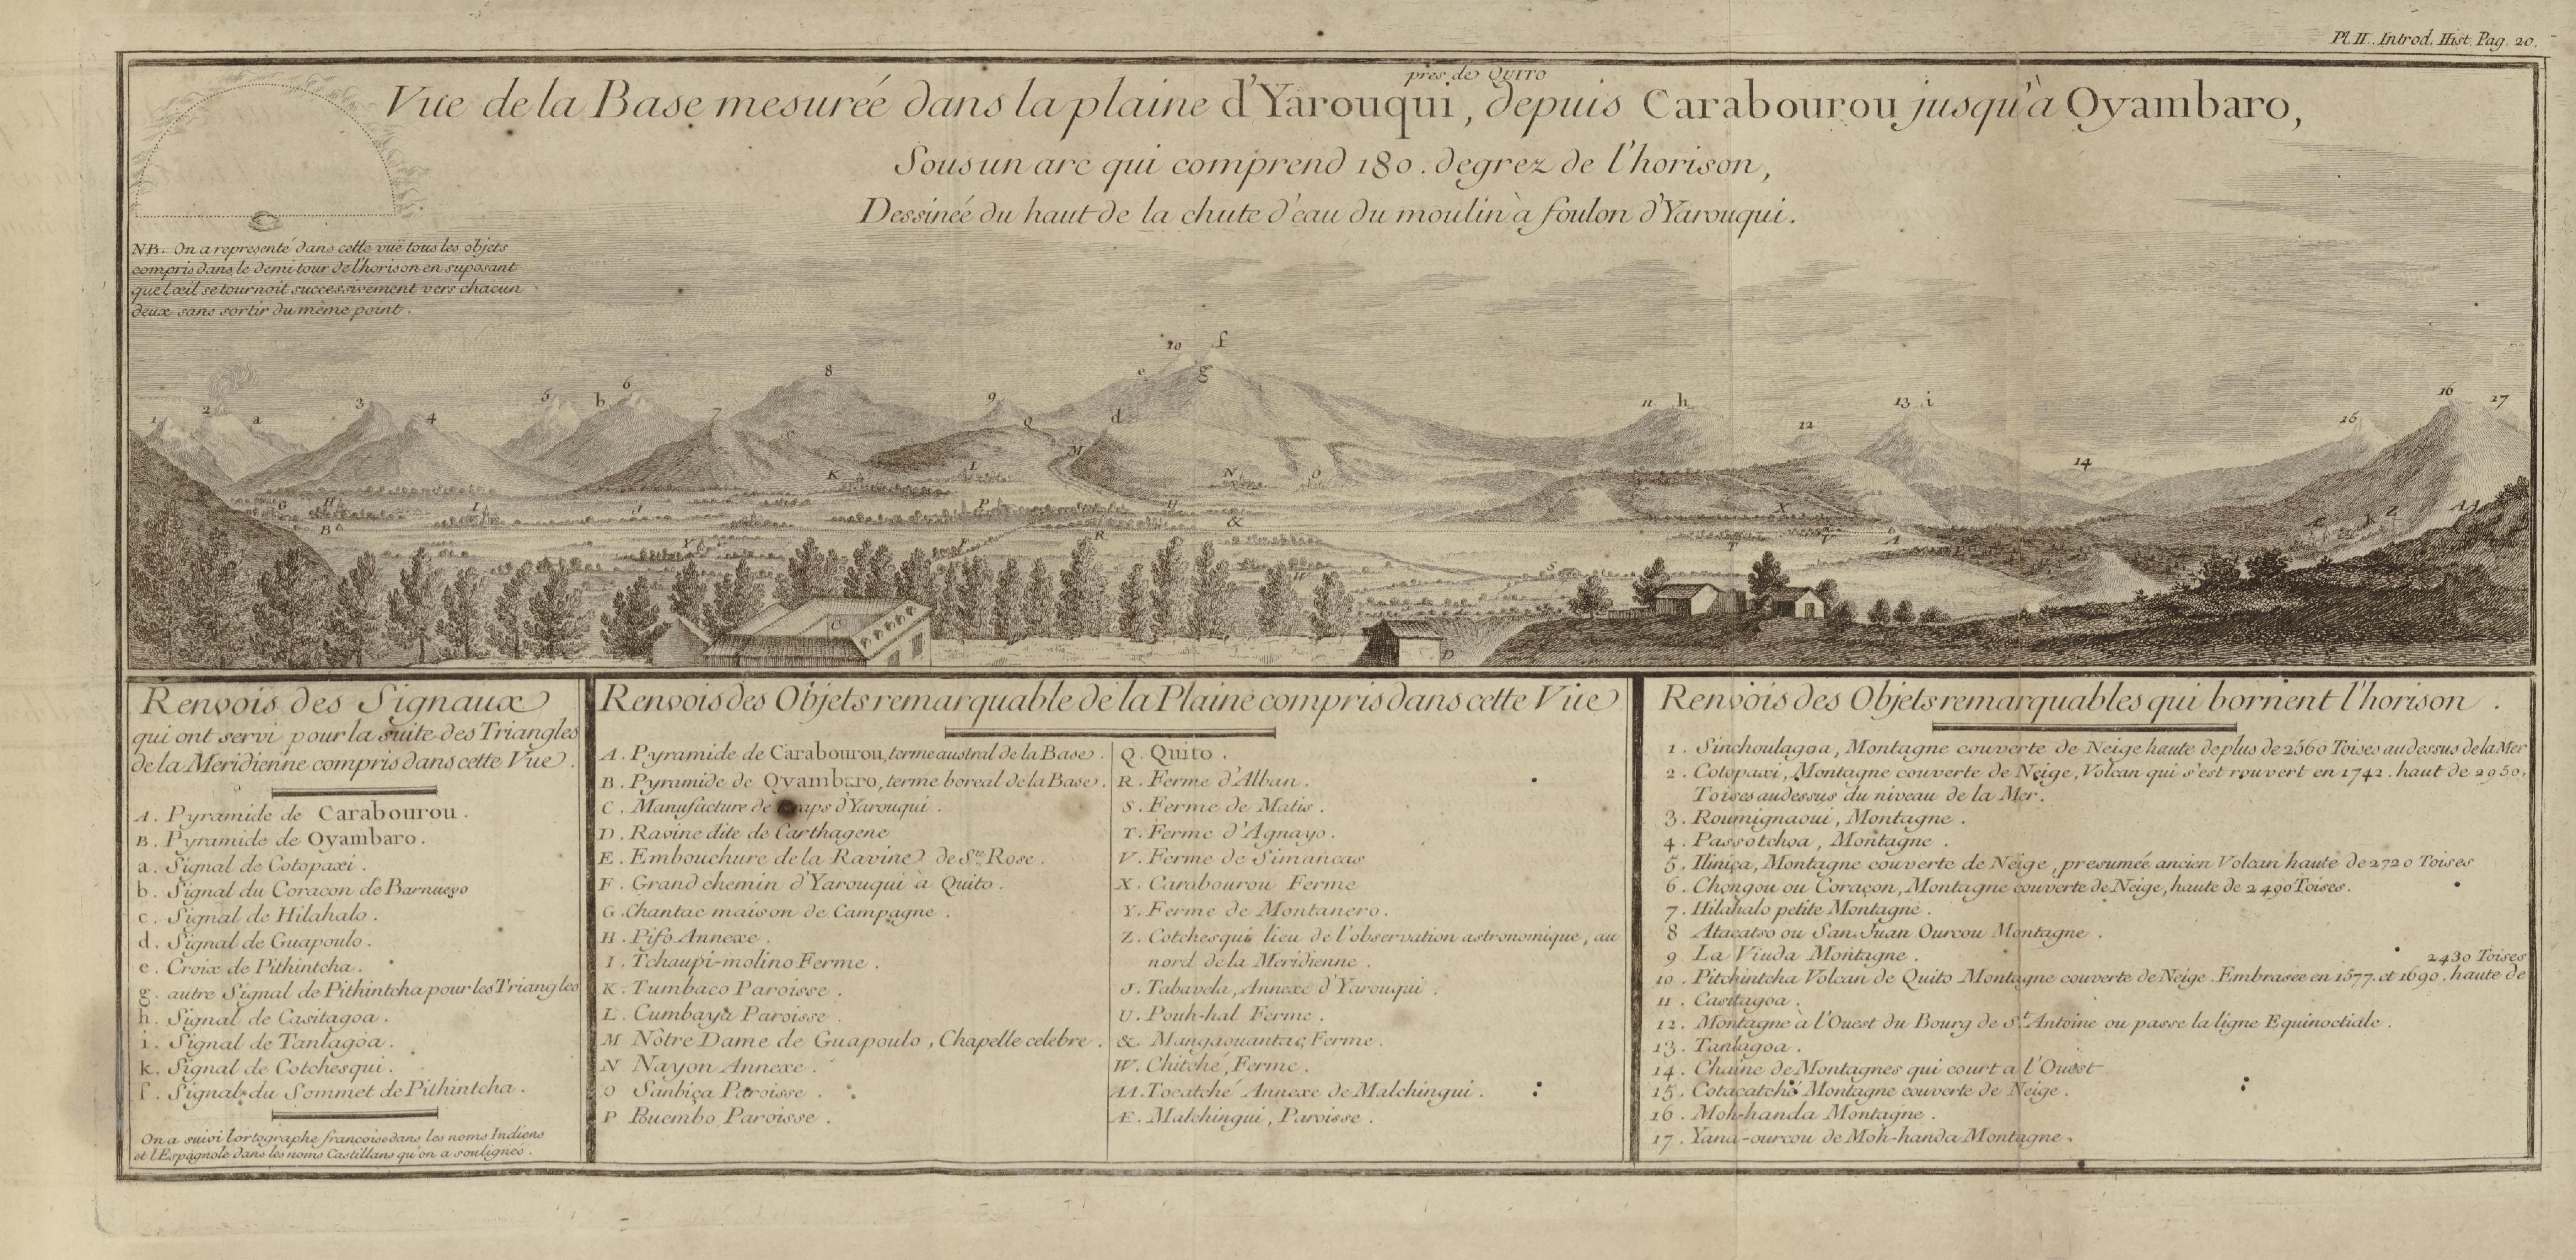 Pl. II. Introd. Hist. Pag. 20.
près de QUITO
Vüe de la Base mesureé dans la plaine d'Yarouqui, depuis Carabourou jusqu'à Oyambaro,
Sous un arc qui comprend 180. degrez de l'horison,
Dessineé du haut de la chute d'eau du moulin à foulon d'Yarouqui.
NB. On a representé dans cette vuë tous les objets
compris dans le demi tour de l'horison en suposant
que l'œil se tournoit successivement vers chacun
deux sans sortir du même point.
10 f
e g
8
6
5 b
3
2
1 a 4
7
c
9
Q
d
M
11 h
13 i
12
14
15
16
17
K L N O
G H I J P U &
B Y F R
X T V A S W
Æ K Z AA
C D
Renvois des Signaux
qui ont servi pour la suite des Triangles
de la Meridienne compris dans cette Vüe.
A. Pyramide de Carabourou.
B. Pyramide de Oyambaro.
a. Signal de Cotopaxi.
b. Signal du Coraçon de Barnuevo
c. Signal de Hilahalo.
d. Signal de Guapoulo.
e. Croix de Pithintcha.
g. autre Signal de Pithintcha pour les Triangles
h. Signal de Casitagoa.
i. Signal de Tanlagoa.
k. Signal de Cotchesqui.
f. Signal du Sommet de Pithintcha.
On a suivi l'ortographe françoise dans les noms Indiens
et l'Espagnole dans les noms Castillans qu'on a soulignes.
Renvois des Objets remarquable de la Plaine compris dans cette Vüe
A. Pyramide de Carabourou, terme austral de la Base.
B. Pyramide de Oyambaro, terme boreal de la Base.
C. Manufacture de Draps d'Yarouqui.
D. Ravine dite de Carthagene
E. Embouchure de la Ravine de Ste. Rose.
F. Grand chemin d'Yarouqui à Quito.
G. Chantac maison de Campagne.
H. Pifo Annexe.
I. Tchaupi-molino Ferme.
K. Tumbaco Paroisse.
L. Cumbaya Paroisse.
M Nôtre Dame de Guapoulo, Chapelle celebre.
N Nayon Annexe.
O Sanbiça Paroisse.
P Puembo Paroisse.
Q. Quito.
R. Ferme d'Alban.
S. Ferme de Matis.
T. Ferme d'Agnayo.
V. Ferme de Simancas
X. Carabourou Ferme
Y. Ferme de Montanero.
Z. Cotchesqui lieu de l'observation astronomique, au
nord de la Meridienne.
J. Tabavela, Annexe d'Yarouqui.
U. Pouh-hal Ferme.
&. Mangaouantac, Ferme.
W. Chitché, Ferme.
AA. Tocatché Annexe de Malchingui.
Æ. Malchingui, Paroisse.
Renvois des Objets remarquables qui bornent l'horison.
1. Sinchoulagoa, Montagne couverte de Neige haute de plus de 2560 Toises au dessus de la Mer
2. Cotopaxi, Montagne couverte de Neige, Volcan qui s'est rouvert en 1742. haut de 2950.
Toises au dessus du niveau de la Mer.
3. Roumignaoui, Montagne.
4. Passotchoa, Montagne.
5. Iliniça, Montagne couverte de Neige, presumeé ancien Volcan haute de 2720 Toises
6. Chongou ou Coraçon, Montagne couverte de Neige, haute de 2490 Toises.
7. Hilahalo petite Montagne.
8 Atacatso ou San Juan Ourcou Montagne.
9 La Viuda Montagne.
2430 Toises
10. Pitchintcha Volcan de Quito Montagne couverte de Neige. Embrasée en 1577. et 1690. haute de
11. Casitagoa.
12. Montagne à l'Ouest du Bourg de St. Antoine ou passe la ligne Equinoctiale.
13. Tanlagoa.
14. Chaine de Montagnes qui court a l'Ouest
15. Cotacatché Montagne couverte de Neige.
16. Moh-handa Montagne.
17. Yana-ourcou de Moh-handa Montagne.